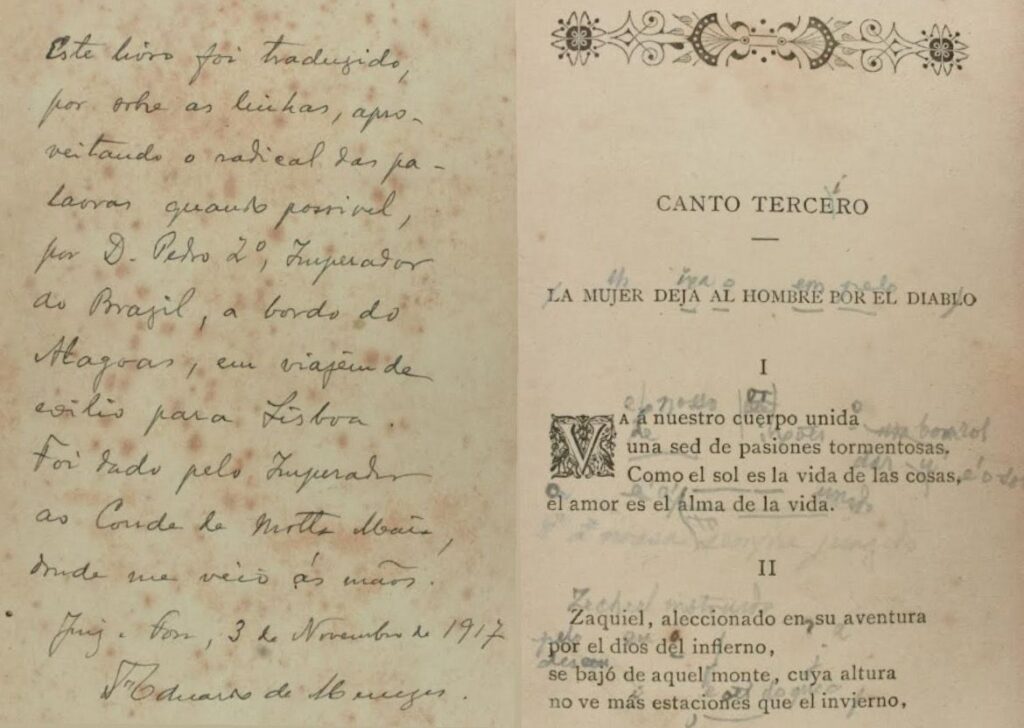 Este livro foi traduzido,
por sobre as linhas, apro-
veitando o radical das pa-
lavras quando possivel,
por D. Pedro 2º, Imperador
do Brazil, a bordo do
Alagoas, em viagem de
exilio para Lisboa.
Foi dado pelo Imperador
ao Conde de Motta Maia,
donde me veio ás mãos.
Juiz de Fora, 3 de Novembro de 1917
Dr. Eduardo de Menezes.
CANTO TERCERO
LA MUJER DEJA AL HOMBRE POR EL DIABLO
I
VA á nuestro cuerpo unida
una sed de pasiones tormentosas.
Como el sol es la vida de las cosas,
el amor es el alma de la vida.
II
Zaquiel, aleccionado en su aventura
por el dios del infierno,
se bajó de aquel monte, cuya altura
no ve más estaciones que el invierno,